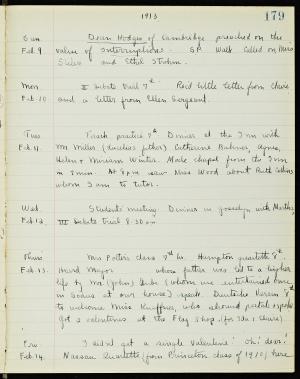 1913
179
Sun Dean Hodges of Cambridge preached on the
Feb. 9 value of Interruptions. S.P. Walk. Called on Miss
and Ethel
Mon II Debate Trial 7th Rec'd little letter from
Feb. 10 and a letter from Ellen Sargent.
Tues practice 7th Dinner at the Inn with
Feb. 11. Mr. Miller ( father) Catherine Agnes,
Helen & Miriam Winter. Made chapel from the Inn
in 3 min. At 8 p.m. saw Miss Wood about Ruth
whom I am to tutor.
Wed. Students' meeting. Dinner in Josselyn with Martha.
Feb. 12. III Debate trial 8.30 p.m.
Thurs Mrs Potters class 7th hr. quartette 8th.
Feb. 13. Heard Major whose father was led to a higher
life by Mr. (John) (whom we entertained once
in at our house) speak. Deutsche Verein 8th
to welcome Miss who
Got 2 valentines at the Flag Shop. (for Ida & Claire).
Fri I didn't get a single Valentine! Oh! dear!
Feb. 14. Nassau Quartette (from Princeton class of 1910) here